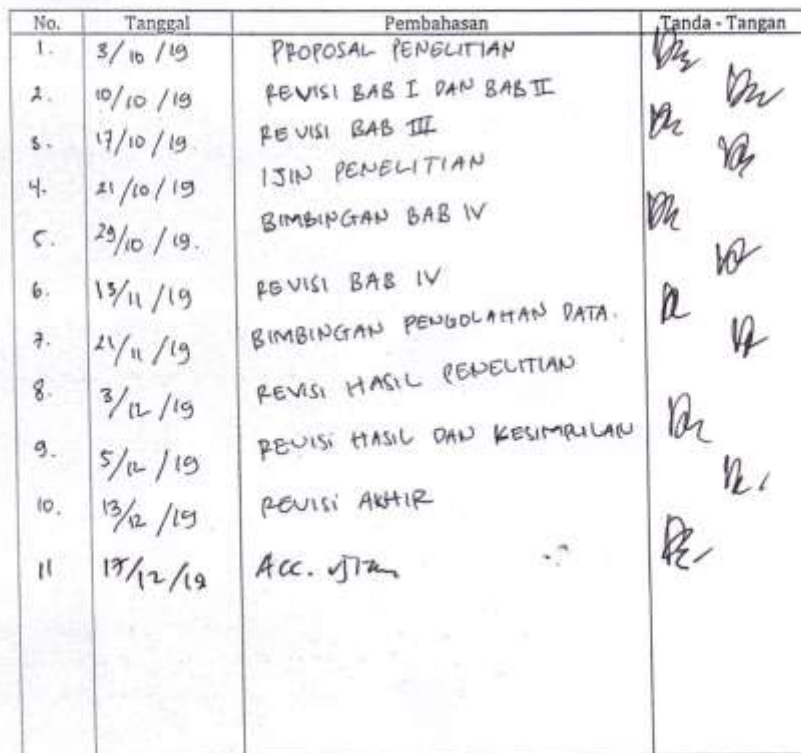 No. Tanggal Pembahasan Tanda - Tangan
1. 3/10/19 PROPOSAL PENELITIAN
2. 10/10/19 REVISI BAB I DAN BAB II
3. 17/10/19 REVISI BAB III
4. 21/10/19 IJIN PENELITIAN
5. 29/10/19. BIMBINGAN BAB IV
6. 13/11/19 REVISI BAB IV
7. 21/11/19 BIMBINGAN PENGOLAHAN DATA.
8. 3/12/19 REVISI HASIL PENELITIAN
9. 5/12/19 REVISI HASIL DAN KESIMPULAN
10. 13/12/19 REVISI AKHIR
11 17/12/19 Acc. ujian